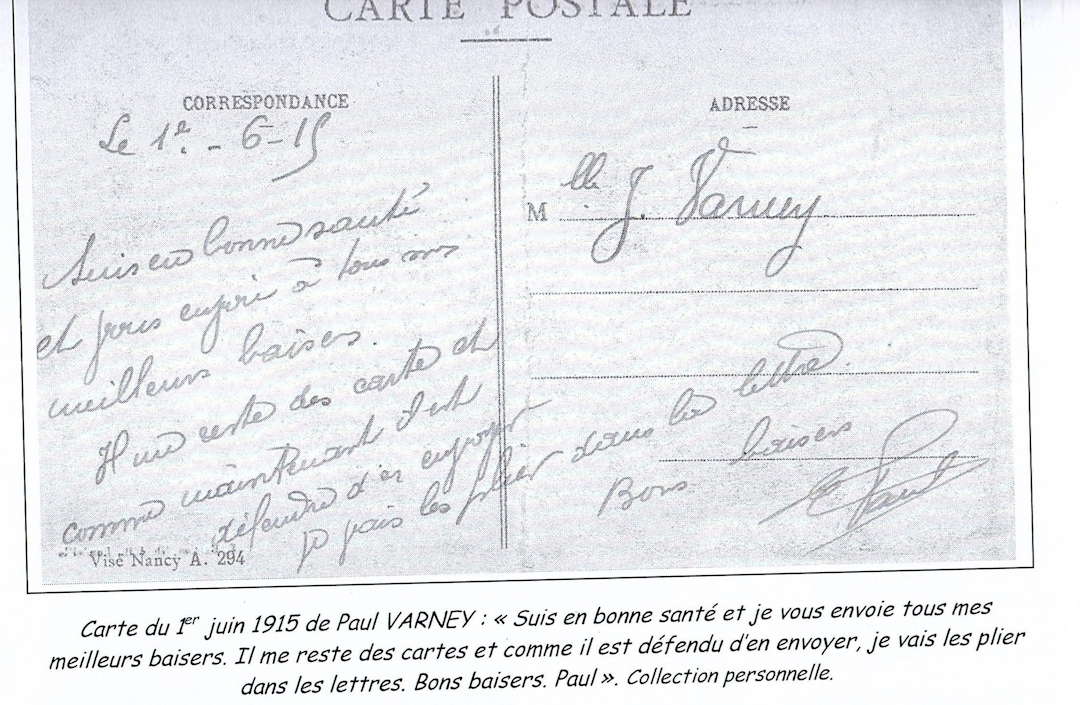 CARTE POSTALE
CORRESPONDANCE
Le 1e. - 6-15
Suis en bonne santé
et vous envoie à tous mes
meilleurs baisers.
Il me reste des carte et
comme maintenant il est
défendre d'en envoyer
je vais les plier dans la lettre.
Visé Nancy A. 294
ADRESSE
Mlle J. Varney
Bons baisers
Paul
Carte du 1er juin 1915 de Paul VARNEY : « Suis en bonne santé et je vous envoie tous mes
meilleurs baisers. Il me reste des cartes et comme il est défendu d'en envoyer, je vais les plier
dans les lettres. Bons baisers. Paul ». Collection personnelle.